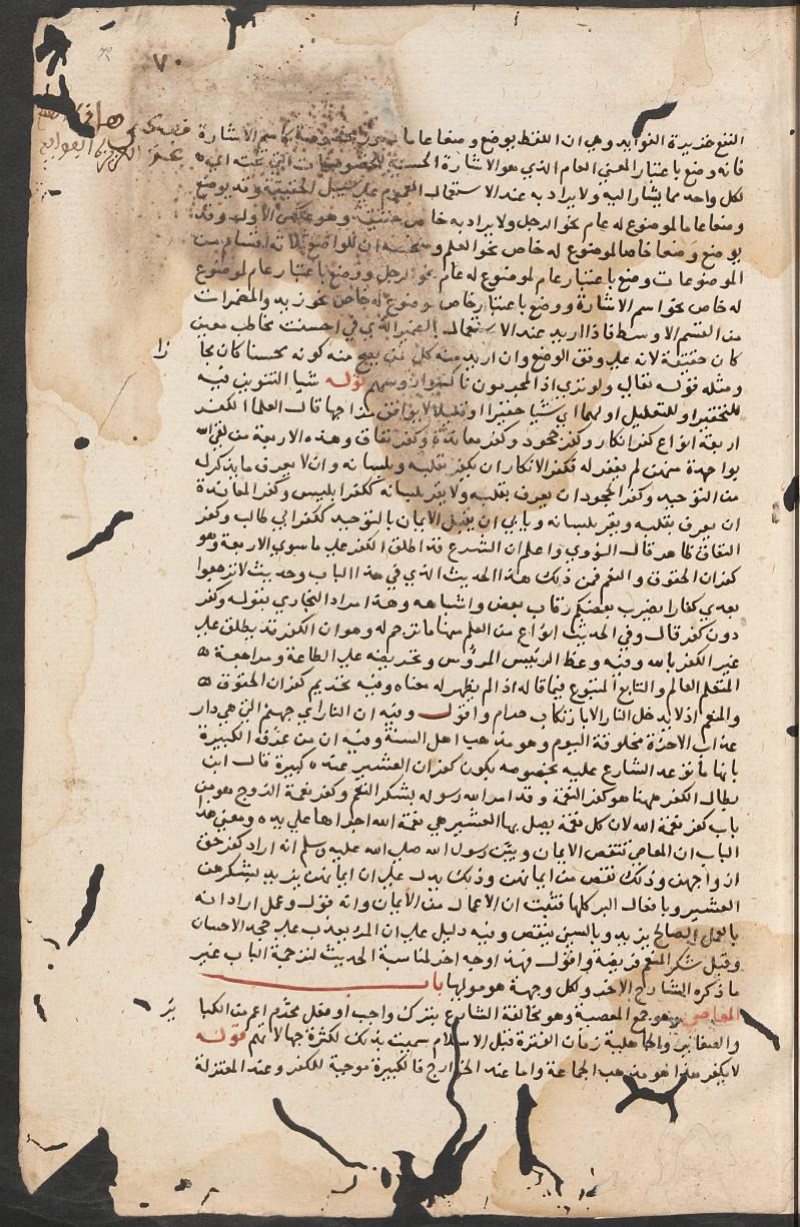 ٧٠
النفع غزيرة الفوايد وهي ان اللفظ يوضع وضعا عاما لامور مخصوصة كاسم الاشارة
فانه وضع باعتبار المعنى العام الذي هو الاشارة الحسية للخصوصيات التي تحته اي
لكل واحد مما يشار اليه ولا يراد به عند الاستعمال العموم على سبيل الحقيقة وقد يوضع
وضعا عاما لموضوع له عام نحو الرجل ولا يراد به خاص حقيقة وهو عكس الاول وقد
يوضع وضعا خاصا لموضوع له خاص نحو العلم وتحقيقه ان للواضع ثلاثة اقسام من
الموضوعات وضع باعتبار عام لموضوع له عام نحو الرجل ووضع باعتبار عام لموضوع
له خاص نحو اسم الاشارة ووضع باعتبار خاص لموضوع له خاص نحو زيد والمضمرات
من القسم الاوسط فاذا اريد عند الاستعمال الضمير الذي في احسنت مخاطب معين
كان حقيقة لانه على وفق الوضع وان اريد منه كل من يصح منه كونه محسنا كان مجا
زا
ومثله قوله تعالى ولو ترى اذ المجرمون ناكسوا روسهم قوله شيا التنوين فيه
للتحقير او للتقليل او لهما اي شيا حقيرا او قليلا لا يوافق مزاجها قال العلما الكفر
اربعة انواع كفر انكار وكفر جحود وكفر معاندة وكفر نفاق وهذه الاربعة من لقي الله
بواحدة منهن لم يغفر له فكفر الانكار ان يكفر بقلبه وبلسانه وان لا يعرف ما يذكر له
من التوحيد وكفر الجحود ان يعرف بقلبه ولا يقر بلسانه ككفر ابليس وكفر المعاندة
ان يعرف بقلبه ويقر بلسانه ويابى ان يقبل الايمان بالتوحيد ككفر ابي طالب وكفر
النفاق ظاهر قال النووي واعلم ان الشرع قد اطلق الكفر على ما سوى الاربعة وهو
كفران الحقوق والنعم فمن ذلك هذا الحديث الذي في هذا الباب وحديث لا ترجعوا
بعدي كفارا يضرب بعضكم رقاب بعض واشباهه وهذا مراد البخاري بقوله وكفر
دون كفر قال وفي الحديث انواع من العلم منها ما ترجم له وهو ان الكفر قد يطلق على
غير الكفر بالله وفيه وعظ الرئيس المروس وتحريضه على الطاعة ومراجعة
المتعلم العالم والتابع المتبوع فيما قاله اذا لم يظهر له معناه وفيه تحريم كفران الحقوق
والنعم اذ لا يدخل النار الا بارتكاب حرام واقول وفيه ان النار اي جهنم التي هي دار
عذاب الاخرة مخلوقة اليوم وهو مذهب اهل السنة وفيه ان من عرف الكبيرة
بانها ما توعد الشارع عليه بخصوصه يكون كفران العشير عنده كبيرة قال ابن
بطال الكفر ههنا هو كفر النعمة وقد امر الله رسوله بشكر النعم وكفر نعمة الزوج هو من
باب كفر نعمة الله لان كل نعمة يصل بها العشير هي نعمة الله اجراها على يده ومعنى هذا
الباب ان المعاصي تنقص الايمان وبين رسول الله صلى الله عليه وسلم انه اراد كفر حق
ازواجهن وذلك نقص من ايمانهن وذلك يدل على ان ايمانهن يزيد بشكرهن
العشير وبافعال البر كلها فثبت ان الاعمال من الايمان وانه قول وعمل اراد انه
بالعمل الصالح يزيد وبالسيئ ينقص وفيه دليل على ان المرء يعذب على جحد الاحسان
وقيل شكر المنعم فريضة واقول فهذا وجه اخر لمناسبة الحديث لترجمة الباب غير
ما ذكره الشارح الاخر ولكل وجهة هو موليها باب
المعاصي وهو جمع المعصية وهو مخالفة الشارع بترك واجب او فعل محرم اعم من الكبا
ئر
والصغائر والجاهلية زمان الفترة قبل الاسلام سميت بذلك لكثرة جهالاتهم قوله
لا يكفر هذا هو مذهب الجماعة واما عند الخوارج فالكبيرة موجبة للكفر وعند المعتزلة